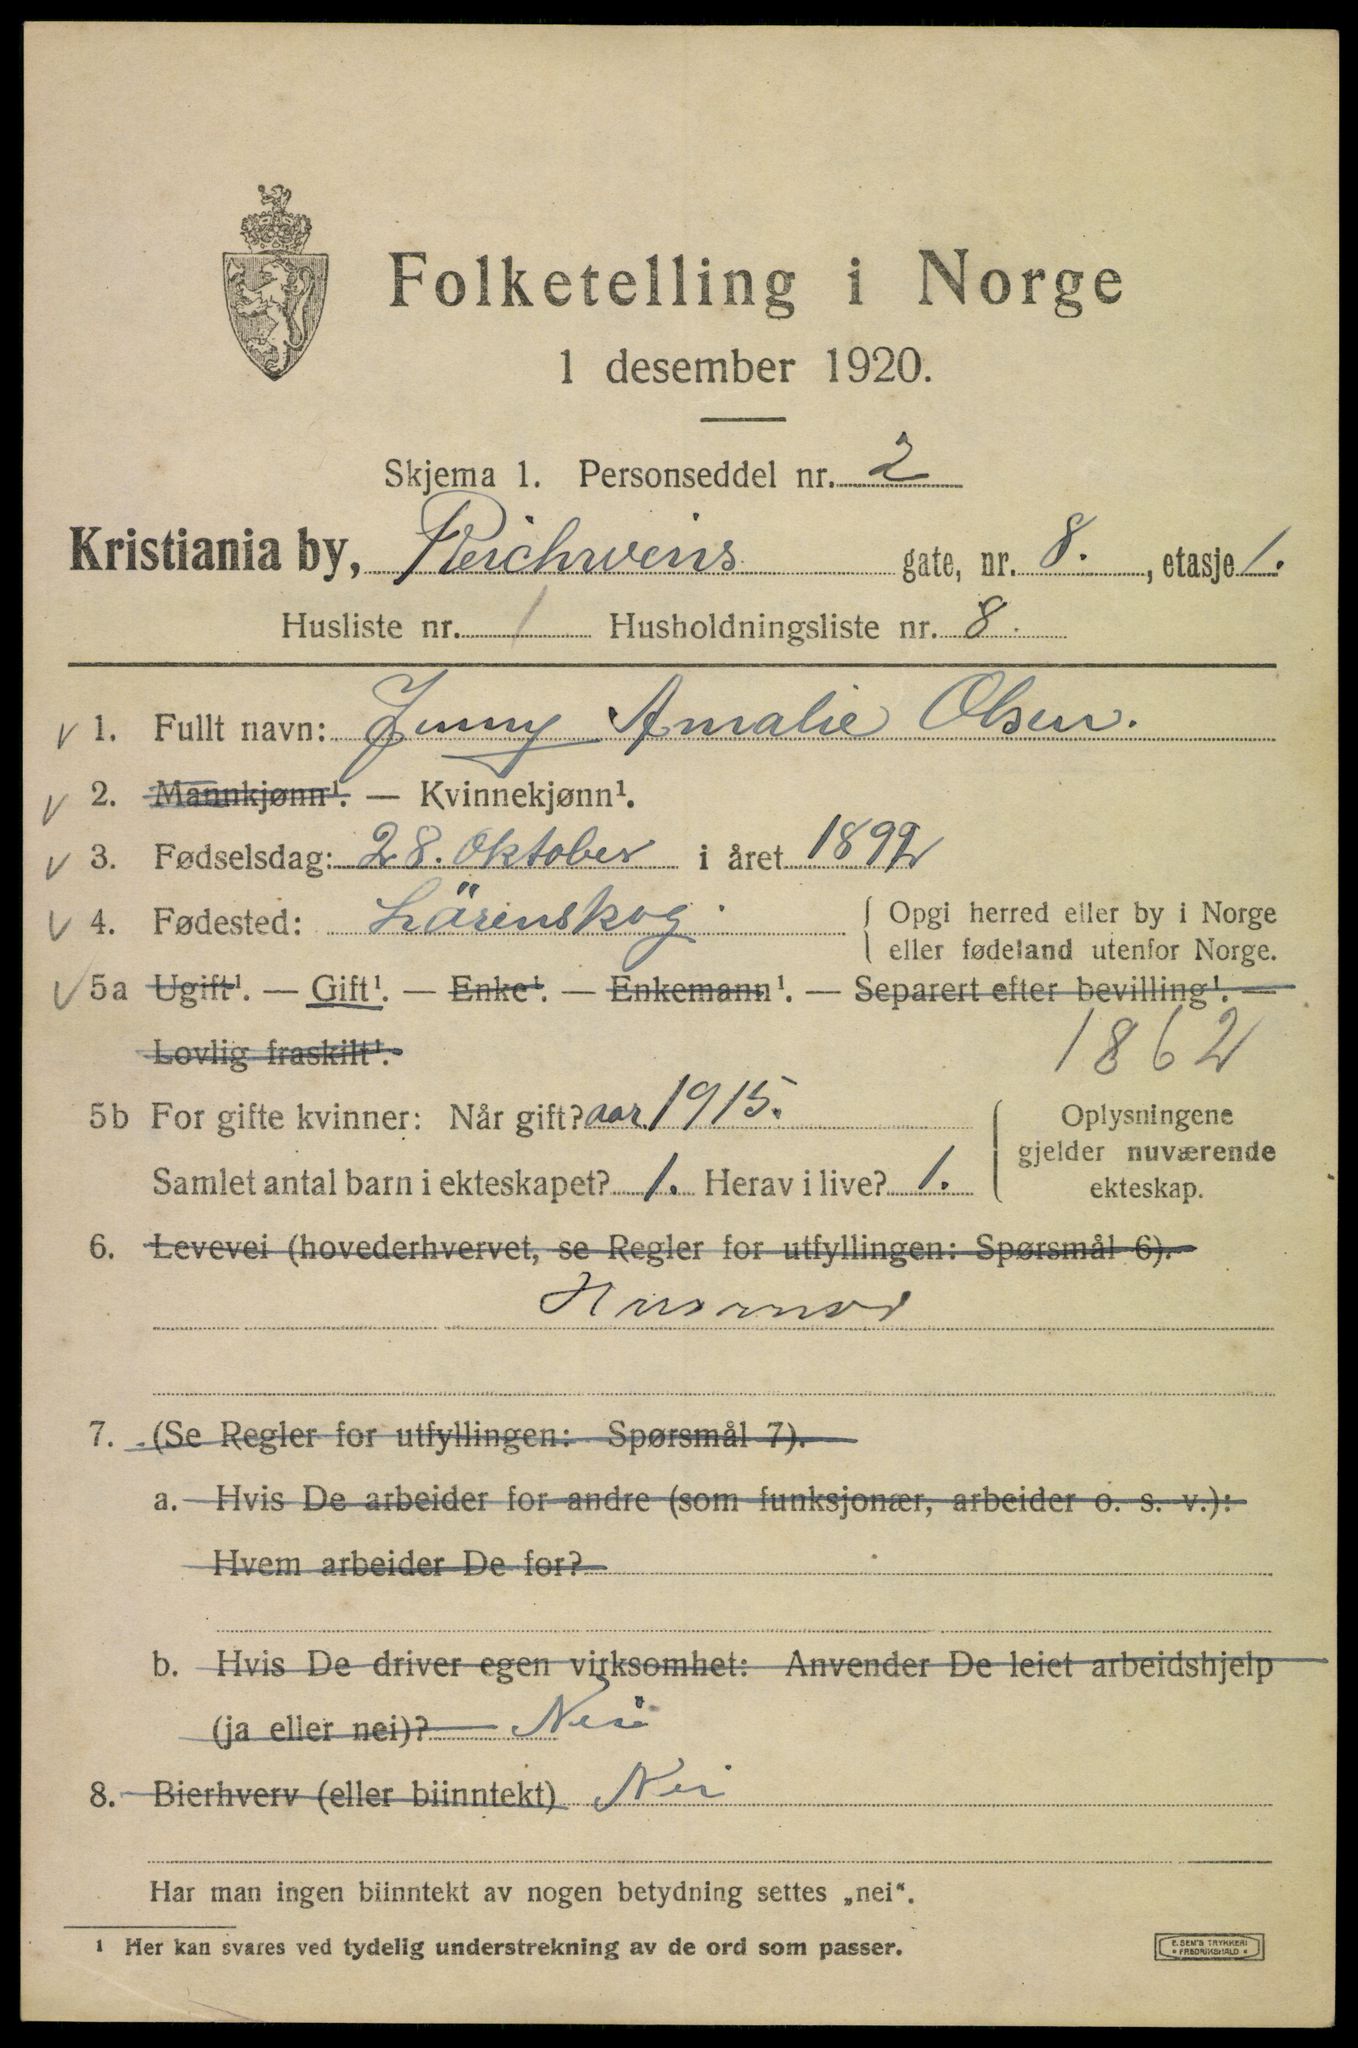 Folketelling i Norge
1 desember 1920.
Skjema 1. Personseddel nr. 2
Kristiania by, Reichweins gate, nr. 8. , etasje 1.
Husliste nr. 1 Husholdningsliste nr. 8.
v 1. Fullt navn: Jenny Amalie Olsen.
v 2. Mannkjønn¹. — Kvinnekjønn¹.
v 3. Fødselsdag: 28. Oktober i året 1892
v 4. Fødested: Lörenskog. { Opgi herred eller by i Norge
eller fødeland utenfor Norge.
v 5a Ugift¹. — Gift¹. — Enke¹. — Enkemann¹. — Separert efter bevilling¹. —
Lovlig fraskilt¹. 1862
5b For gifte kvinner: Når gift? aar 1915. { Oplysningene
gjelder nuværende
Samlet antal barn i ekteskapet? 1. Herav i live? 1. ekteskap.
6. Levevei (hovederhvervet, se Regler for utfyllingen: Spørsmål 6).
Husmor
7. (Se Regler for utfyllingen: Spørsmål 7).
a. Hvis De arbeider for andre (som funksjonær, arbeider o. s. v.):
Hvem arbeider De for?
b. Hvis De driver egen virksomhet: Anvender De leiet arbeidshjelp
(ja eller nei)? Nei
8. Bierhverv (eller biinntekt) Nei
Har man ingen biinntekt av nogen betydning settes „nei“.
¹ Her kan svares ved tydelig understrekning av de ord som passer.
E. SEM'S TRYKKERI
* FREDRIKSHALD *